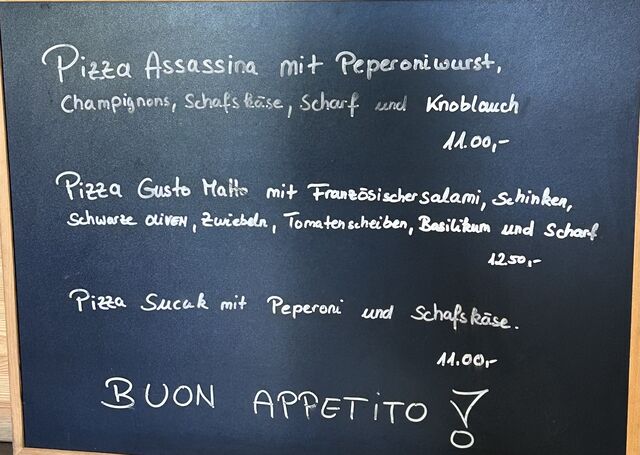 Pizza Assassina mit Peperoniwurst,
Champignons, Schafskäse, Scharf und Knoblauch
11.00,-
Pizza Gusto Matto mit Französischersalami, Schinken,
Schwarze OLIVEN, Zwiebeln, Tomatenscheiben, Basilikum und Scharf
12.50,-
Pizza Sucuk mit Peperoni und Schafskäse.
11.00,-
BUON APPETITO !